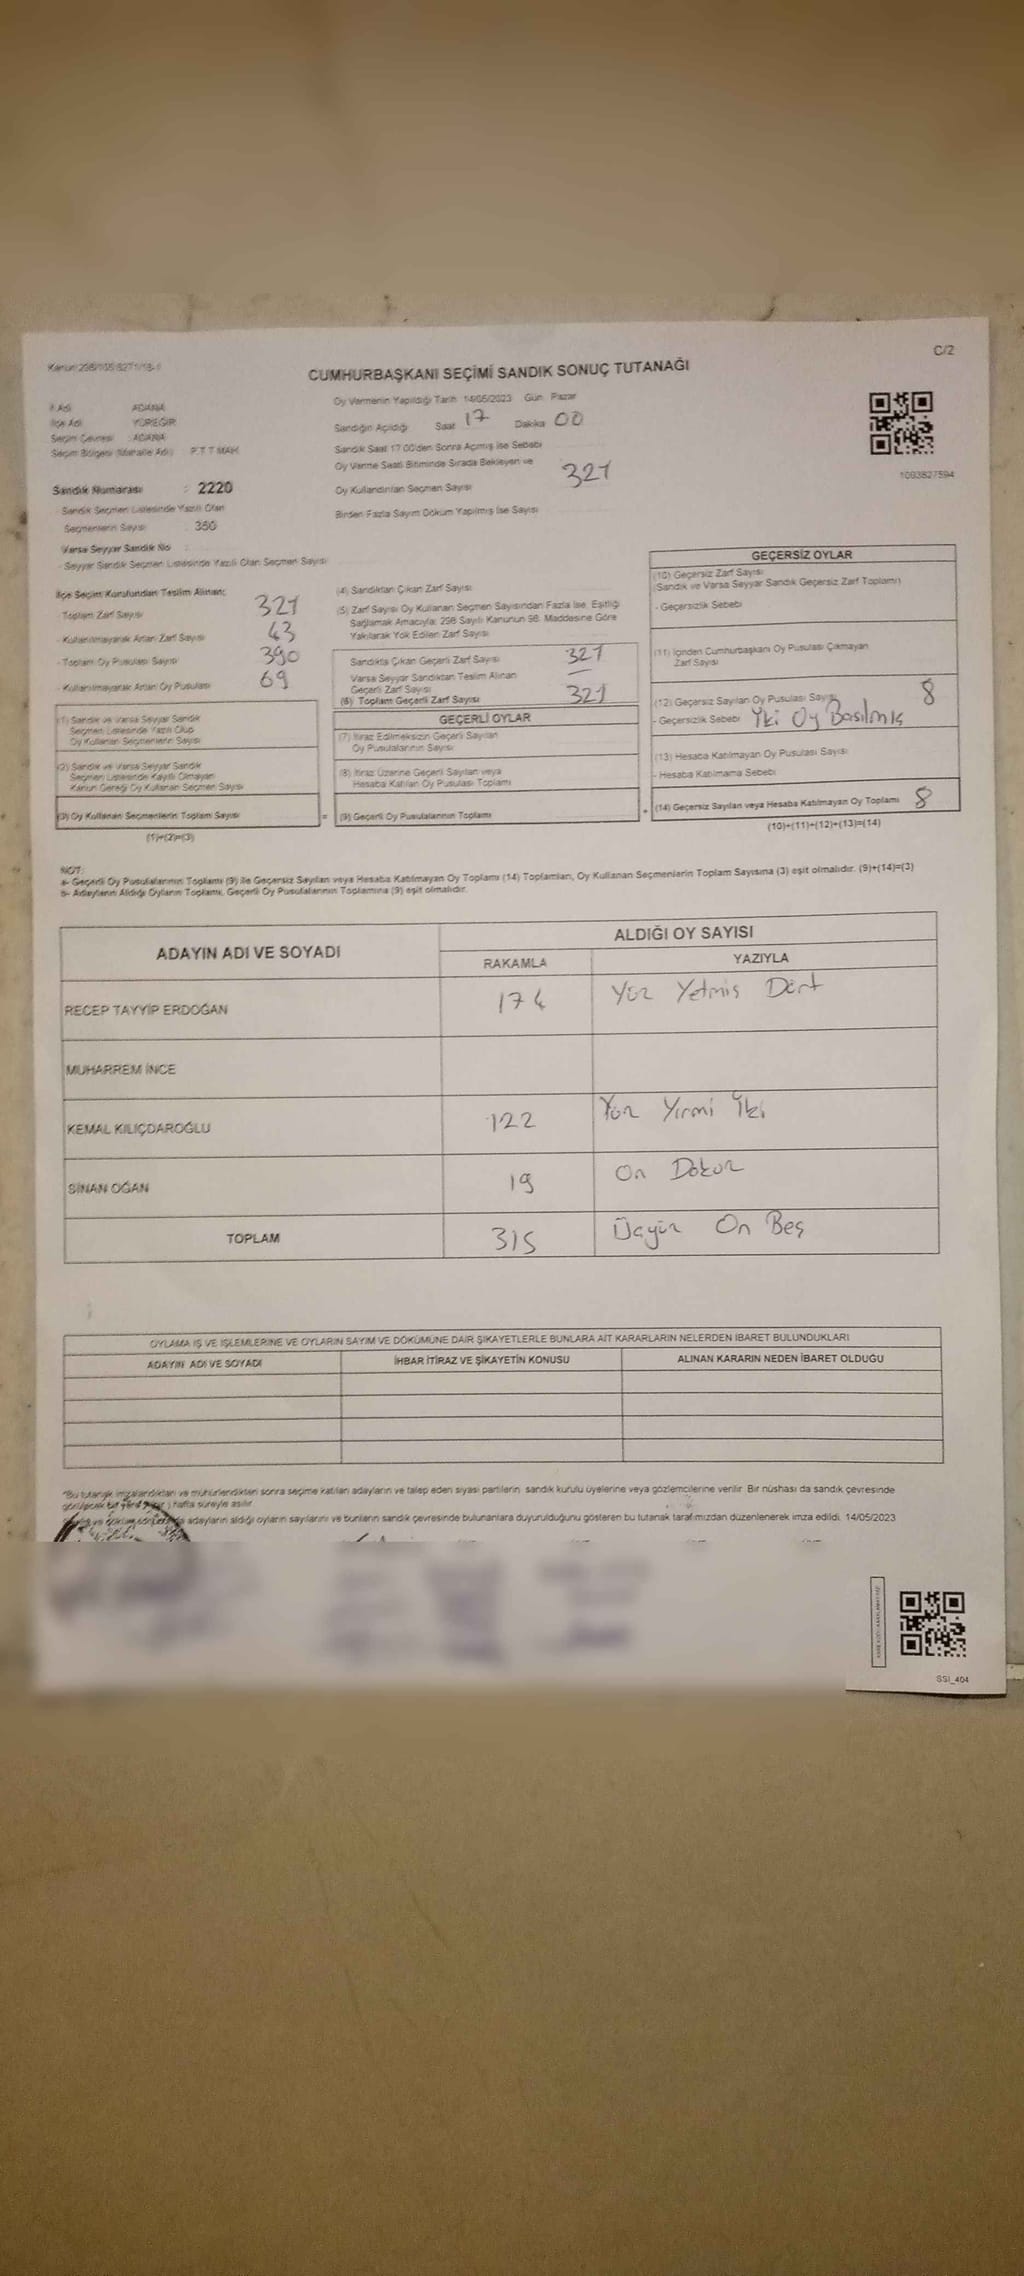 Kanun:298/105/6271/18-1
C/2
CUMHURBAŞKANI SEÇİMİ SANDIK SONUÇ TUTANAĞI
İl Adı ADANA
İlçe Adı YÜREĞİR
Seçim Çevresi : ADANA
Seçim Bölgesi (Mahalle Adı) P.T.T MAH.
Sandık Numarası : 2220
Sandık Seçmen Listesinde Yazılı Olan
Seçmenlerin Sayısı : 360
Varsa Seyyar Sandık No
- Seyyar Sandık Seçmen Listesinde Yazılı Olan Seçmen Sayısı
Oy Vermenin Yapıldığı Tarih 14/05/2023 Gün Pazar
Sandığın Açıldığı Saat 17 Dakika 00
Sandık Saat 17.00'den Sonra Açılmış İse Sebebi
Oy Verme Saati Bitiminde Sırada Bekleyen ve
Oy Kullandırılan Seçmen Sayısı 321
Birden Fazla Sayım Döküm Yapılmış İse Sayısı
1093827594
İlçe Seçim Kurulundan Teslim Alınan;
- Toplam Zarf Sayısı 321
- Kullanılmayarak Artan Zarf Sayısı 43
- Toplam Oy Pusulası Sayısı 390
- Kullanılmayarak Artan Oy Pusulası 69
(1) Sandık ve Varsa Seyyar Sandık
Seçmen Listesinde Yazılı Olup
Oy Kullanan Seçmenlerin Sayısı
(2) Sandık ve Varsa Seyyar Sandık
Seçmen Listesinde Kayıtlı Olmayan
Kanun Gereği Oy Kullanan Seçmen Sayısı
(3) Oy Kullanan Seçmenlerin Toplam Sayısı
(1)+(2)=(3)
(4) Sandıktan Çıkan Zarf Sayısı
(5) Zarf Sayısı Oy Kullanan Seçmen Sayısından Fazla İse, Eşitliği
Sağlamak Amacıyla; 298 Sayılı Kanunun 98. Maddesine Göre
Yakılarak Yok Edilen Zarf Sayısı
Sandıkta Çıkan Geçerli Zarf Sayısı 321
Varsa Seyyar Sandıktan Teslim Alınan
Geçerli Zarf Sayısı —
(6) Toplam Geçerli Zarf Sayısı 321
GEÇERLİ OYLAR
(7) İtiraz Edilmeksizin Geçerli Sayılan
Oy Pusulalarının Sayısı
(8) İtiraz Üzerine Geçerli Sayılan veya
Hesaba Katılan Oy Pusulası Toplamı
= (9) Geçerli Oy Pusulalarının Toplamı
GEÇERSİZ OYLAR
(10) Geçersiz Zarf Sayısı
(Sandık ve Varsa Seyyar Sandık Geçersiz Zarf Toplamı)
- Geçersizlik Sebebi
(11) İçinden Cumhurbaşkanı Oy Pusulası Çıkmayan
Zarf Sayısı
(12) Geçersiz Sayılan Oy Pusulası Sayısı 8
- Geçersizlik Sebebi İki Oy Basılmış
(13) Hesaba Katılmayan Oy Pusulası Sayısı
- Hesaba Katılmama Sebebi
+ (14) Geçersiz Sayılan veya Hesaba Katılmayan Oy Toplamı 8
(10)+(11)+(12)+(13)=(14)
NOT:
a- Geçerli Oy Pusulalarının Toplamı (9) ile Geçersiz Sayılan veya Hesaba Katılmayan Oy Toplamı (14) Toplamları, Oy Kullanan Seçmenlerin Toplam Sayısına (3) eşit olmalıdır. (9)+(14)=(3)
b- Adayların Aldığı Oyların Toplamı, Geçerli Oy Pusulalarının Toplamına (9) eşit olmalıdır.
ADAYIN ADI VE SOYADI ALDIĞI OY SAYISI
RAKAMLA YAZIYLA
RECEP TAYYİP ERDOĞAN 174 Yüz Yetmiş Dört
MUHARREM İNCE
KEMAL KILIÇDAROĞLU 122 Yüz Yirmi İki
SİNAN OĞAN 19 On Dokuz
TOPLAM 315 Üçyüz On Beş
OYLAMA İŞ VE İŞLEMLERİNE VE OYLARIN SAYIM VE DÖKÜMÜNE DAİR ŞİKAYETLERLE BUNLARA AİT KARARLARIN NELERDEN İBARET BULUNDUKLARI
ADAYIN ADI VE SOYADI İHBAR İTİRAZ VE ŞİKAYETİN KONUSU ALINAN KARARIN NEDEN İBARET OLDUĞU
*Bu tutanak imzalandıktan ve mühürlendikten sonra seçime katılan adayların ve talep eden siyasi partilerin sandık kurulu üyelerine veya gözlemcilerine verilir. Bir nüshası da sandık çevresinde
görülecek bir yere hafta süreyle asılır.
adayların aldığı oyların sayılarını ve bunların sandık çevresinde bulunanlara duyurulduğunu gösteren bu tutanak tarafımızdan düzenlenerek imza edildi. 14/05/2023
SSI_404